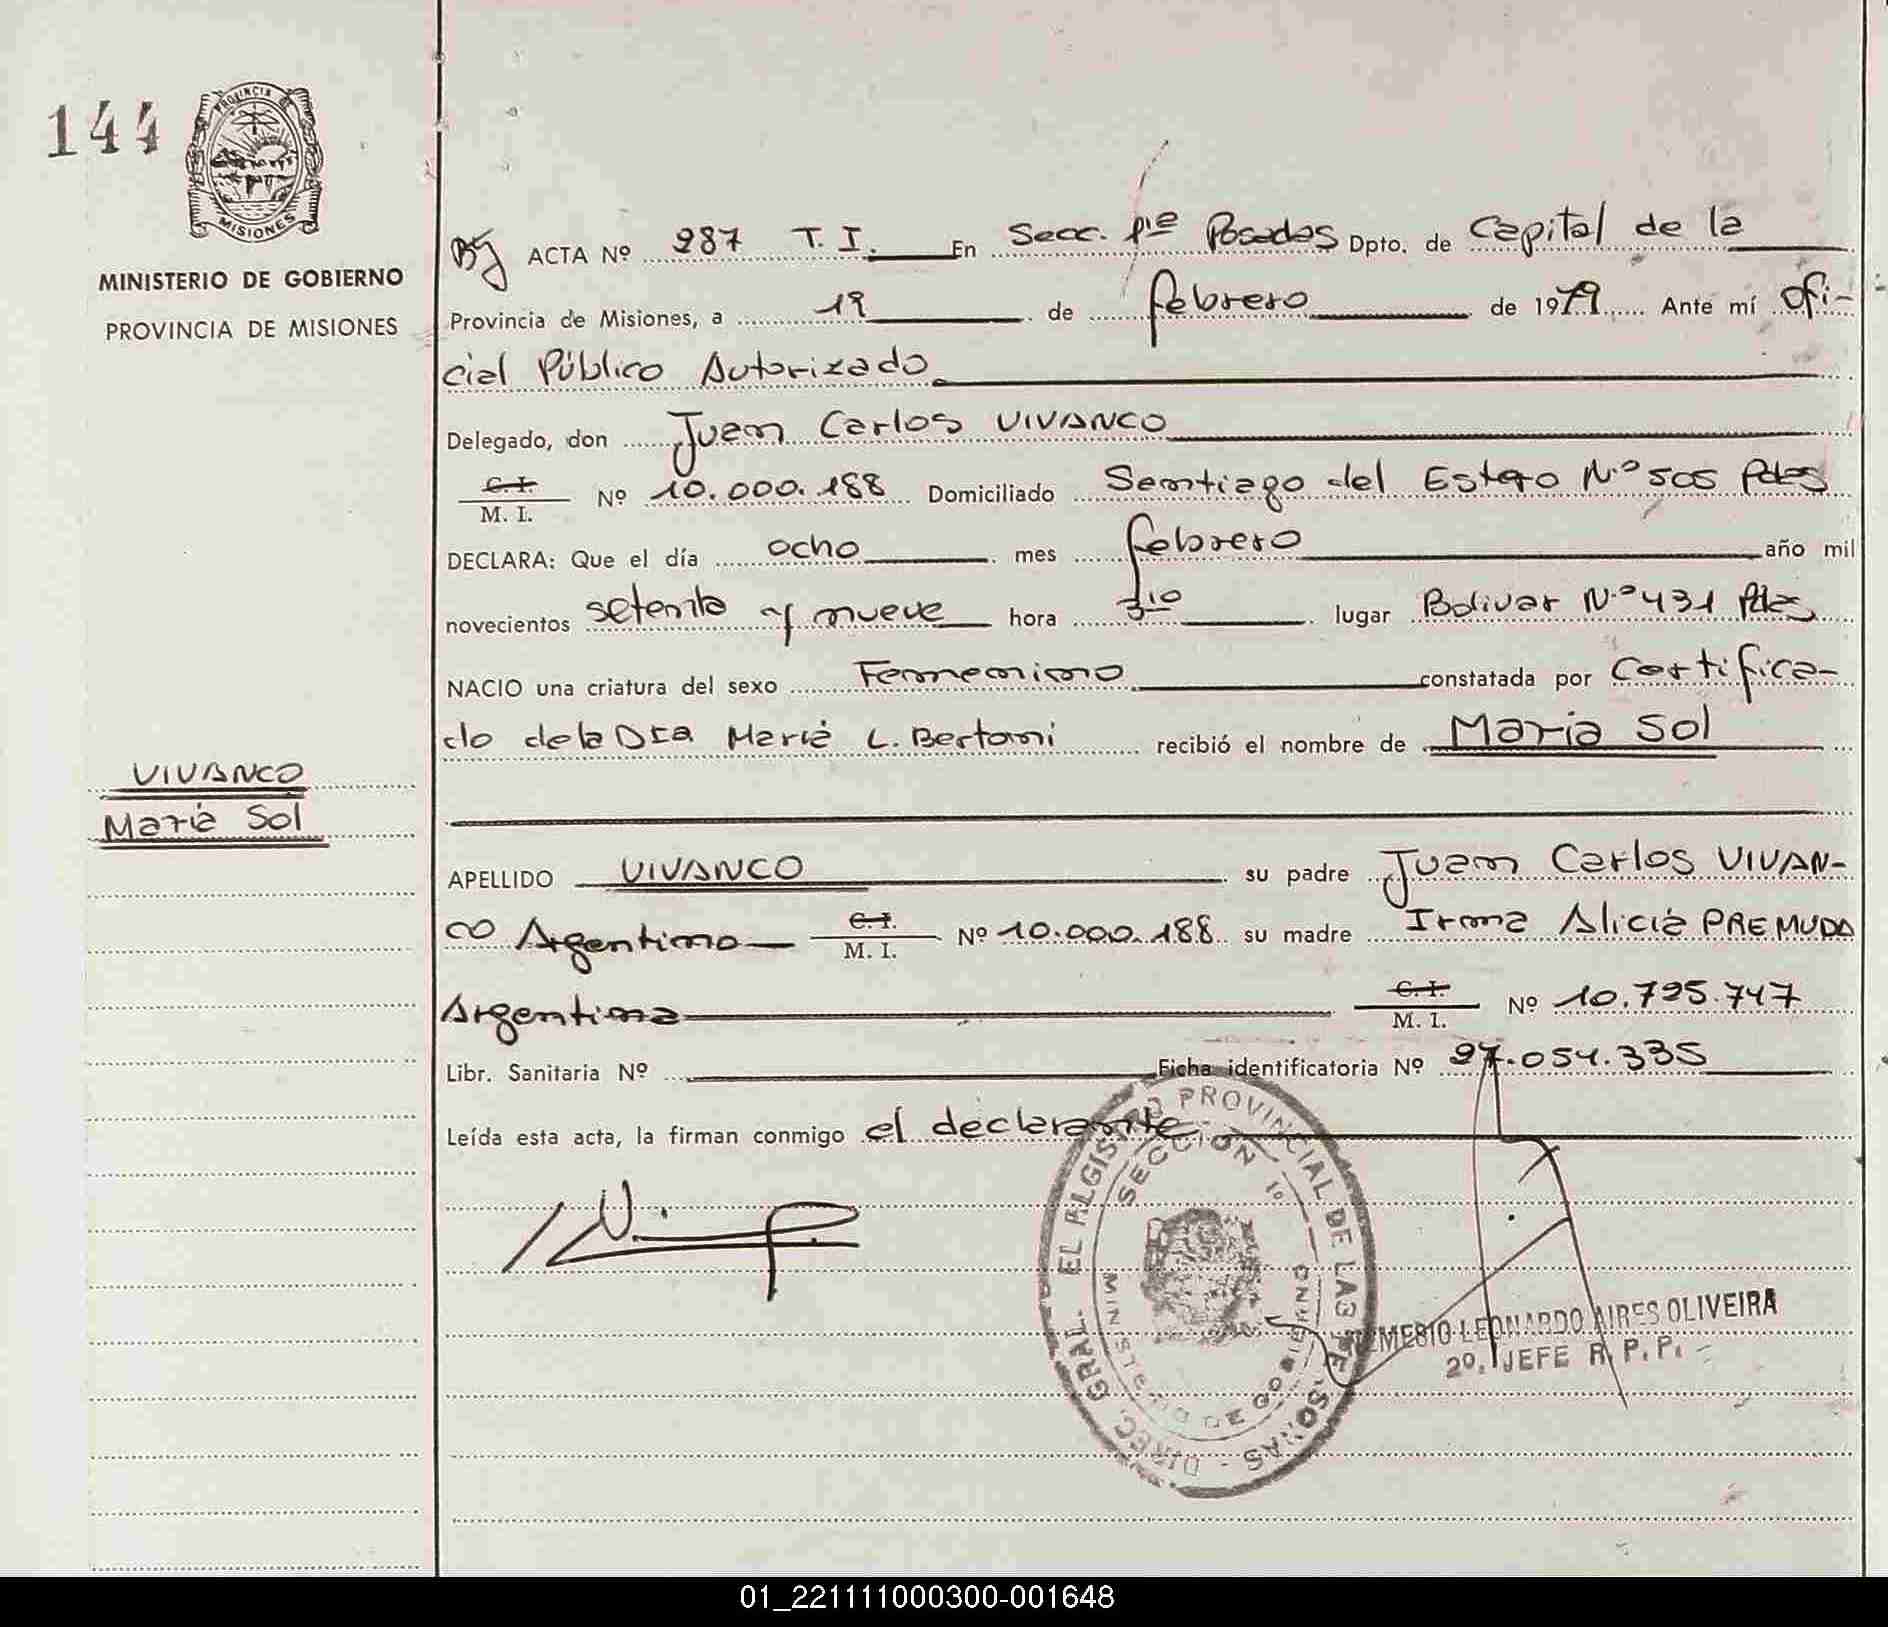 144
PROVINCIA DE
MISIONES
MINISTERIO DE GOBIERNO
PROVINCIA DE MISIONES
VIVANCO
María Sol
ACTA Nº 287 T. I. En Secc. 1ra Posadas Dpto. de Capital de la
Provincia de Misiones, a 19 de febrero de 1979 Ante mí Ofi-
cial Público Autorizado
Delegado, don Juan Carlos VIVANCO
C. I. / M. I. Nº 10.000.188 Domiciliado Santiago del Estero N.º 505 Pdas
DECLARA: Que el día ocho mes febrero año mil
novecientos setenta y nueve hora 3 10 lugar Bolivar N.º 431 Pdas
NACIO una criatura del sexo Femenino constatada por Certifica-
do de la Dra María L. Bertoni recibió el nombre de María Sol
APELLIDO VIVANCO su padre Juan Carlos VIVAN-
CO Argentino C. I. / M. I. Nº 10.000.188 su madre Irma Alicia PREMUDA
Argentina C. I. / M. I. Nº 10.795.747
Libr. Sanitaria Nº Ficha identificatoria Nº 27.054.335
Leída esta acta, la firman conmigo el declarante
DIREC. GRAL. PROVINCIAL DE LAS PERSONAS
SECCION 1º
MINISTERIO DE GOBIERNO
LEONARDO AIRES OLIVEIRA
2º. JEFE R. P. P.
01_221111000300-001648